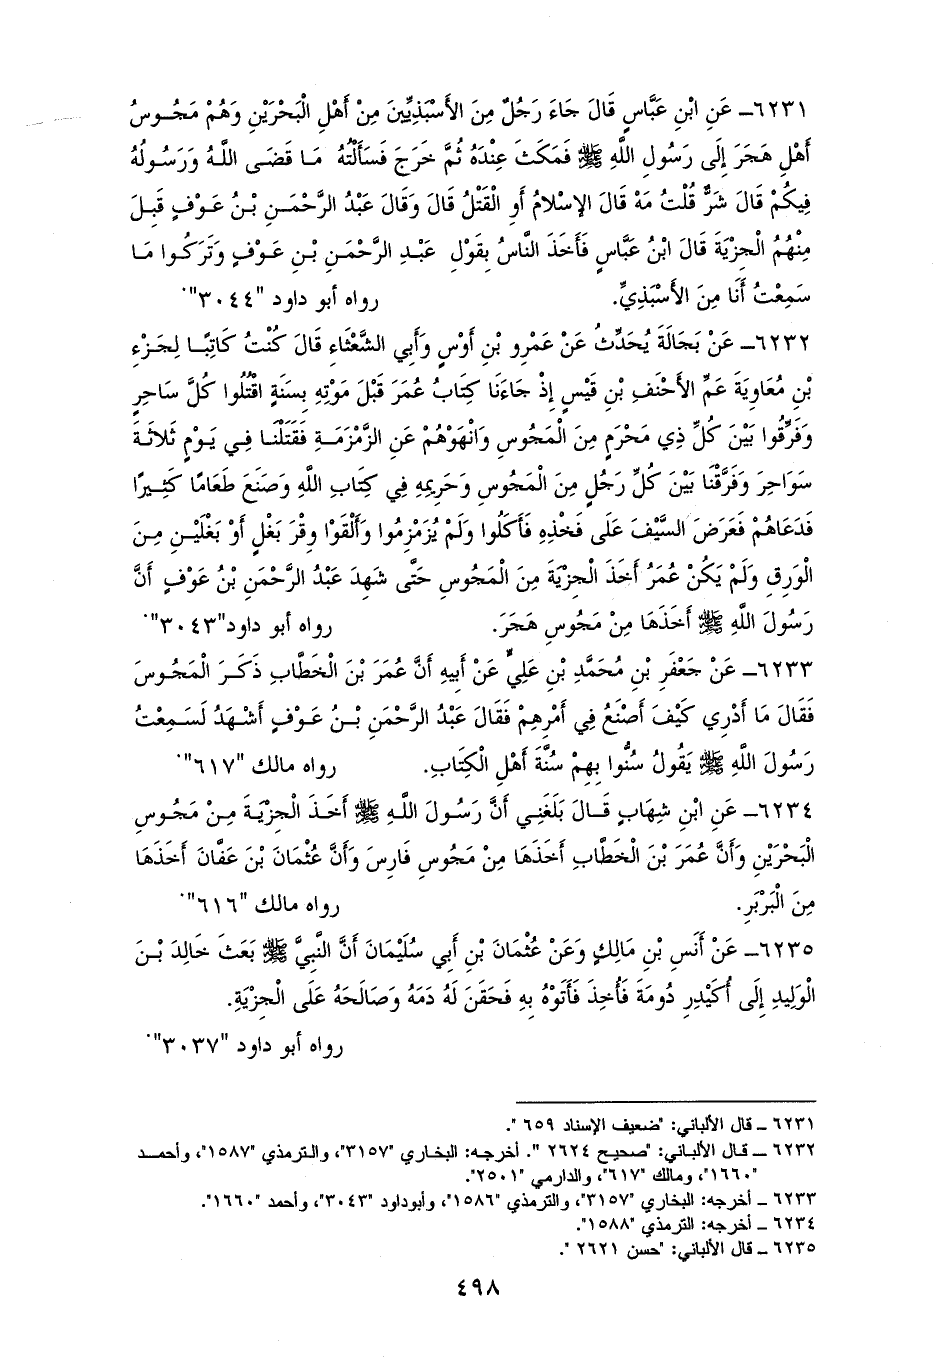 ٦٢٣١ـ عَنِ ابْنِ عَبَّاسٍ قَالَ جَاءَ رَجُلٌ مِنَ الأَسْبَذِيِّينَ مِنْ أَهْلِ الْبَحْرَيْنِ وَهُمْ مَجُوسُ
أَهْلِ هَجَرَ إِلَى رَسُولِ اللَّهِ ﷺ فَمَكَثَ عِنْدَهُ ثُمَّ خَرَجَ فَسَأَلْتُهُ مَا قَضَى اللَّهُ وَرَسُولُهُ
فِيكُمْ قَالَ شَرٌّ قُلْتُ مَهْ قَالَ الإِسْلامُ أَوِ الْقَتْلُ قَالَ وَقَالَ عَبْدُ الرَّحْمَنِ بْنُ عَوْفٍ قَبِلَ
مِنْهُمُ الْجِزْيَةَ قَالَ ابْنُ عَبَّاسٍ فَأَخَذَ النَّاسُ بِقَوْلِ عَبْدِ الرَّحْمَنِ بْنِ عَوْفٍ وَتَرَكُوا مَا
سَمِعْتُ أَنَا مِنَ الأَسْبَذِيِّ. رواه أبو داود "٣٠٤٤".
٦٢٣٢ـ عَنْ بَجَالَةَ يُحَدِّثُ عَنْ عَمْرِو بْنِ أَوْسٍ وَأَبِي الشَّعْثَاءِ قَالَ كُنْتُ كَاتِبًا لِجَزْءِ
بْنِ مُعَاوِيَةَ عَمِّ الأَحْنَفِ بْنِ قَيْسٍ إِذْ جَاءَنَا كِتَابُ عُمَرَ قَبْلَ مَوْتِهِ بِسَنَةٍ اقْتُلُوا كُلَّ سَاحِرٍ
وَفَرِّقُوا بَيْنَ كُلِّ ذِي مَحْرَمٍ مِنَ الْمَجُوسِ وَانْهَوْهُمْ عَنِ الزَّمْزَمَةِ فَقَتَلْنَا فِي يَوْمٍ ثَلاثَةَ
سَوَاحِرَ وَفَرَّقْنَا بَيْنَ كُلِّ رَجُلٍ مِنَ الْمَجُوسِ وَحَرِيمِهِ فِي كِتَابِ اللَّهِ وَصَنَعَ طَعَامًا كَثِيرًا
فَدَعَاهُمْ فَعَرَضَ السَّيْفَ عَلَى فَخْذِهِ فَأَكَلُوا وَلَمْ يُزَمْزِمُوا وَأَلْقَوْا وِقْرَ بَغْلٍ أَوْ بَغْلَيْنِ مِنَ
الْوَرِقِ وَلَمْ يَكُنْ عُمَرُ أَخَذَ الْجِزْيَةَ مِنَ الْمَجُوسِ حَتَّى شَهِدَ عَبْدُ الرَّحْمَنِ بْنُ عَوْفٍ أَنَّ
رَسُولَ اللَّهِ ﷺ أَخَذَهَا مِنْ مَجُوسِ هَجَرَ. رواه أبو داود"٣٠٤٣".
٦٢٣٣ـ عَنْ جَعْفَرِ بْنِ مُحَمَّدِ بْنِ عَلِيٍّ عَنْ أَبِيهِ أَنَّ عُمَرَ بْنَ الْخَطَّابِ ذَكَرَ الْمَجُوسَ
فَقَالَ مَا أَدْرِي كَيْفَ أَصْنَعُ فِي أَمْرِهِمْ فَقَالَ عَبْدُ الرَّحْمَنِ بْنُ عَوْفٍ أَشْهَدُ لَسَمِعْتُ
رَسُولَ اللَّهِ ﷺ يَقُولُ سُنُّوا بِهِمْ سُنَّةَ أَهْلِ الْكِتَابِ. رواه مالك "٦١٧".
٦٢٣٤ـ عَنِ ابْنِ شِهَابٍ قَالَ بَلَغَنِي أَنَّ رَسُولَ اللَّهِ ﷺ أَخَذَ الْجِزْيَةَ مِنْ مَجُوسِ
الْبَحْرَيْنِ وَأَنَّ عُمَرَ بْنَ الْخَطَّابِ أَخَذَهَا مِنْ مَجُوسِ فَارِسَ وَأَنَّ عُثْمَانَ بْنَ عَفَّانَ أَخَذَهَا
مِنَ الْبَرْبَرِ. رواه مالك "٦١٦".
٦٢٣٥ـ عَنْ أَنَسِ بْنِ مَالِكٍ وَعَنْ عُثْمَانَ بْنِ أَبِي سُلَيْمَانَ أَنَّ النَّبِيَّ ﷺ بَعَثَ خَالِدَ بْنَ
الْوَلِيدِ إِلَى أُكَيْدِرِ دُومَةَ فَأُخِذَ فَأَتَوْهُ بِهِ فَحَقَنَ لَهُ دَمَهُ وَصَالَحَهُ عَلَى الْجِزْيَةِ.
رواه أبو داود "٣٠٣٧".
٦٢٣١ ـ قال الألباني: "ضعيف الإسناد ٦٥٩ ".
٦٢٣٢ ـ قال الألباني: "صحيح ٢٦٢٤ ". أخرجه: البخاري "٣١٥٧"، والترمذي "١٥٨٧"، وأحمد
"١٦٦٠"، ومالك "٦١٧"، والدارمي "٢٥٠١".
٦٢٣٣ ـ أخرجه: البخاري "٣١٥٧"، والترمذي "١٥٨٦"، وأبوداود "٣٠٤٣"، وأحمد "١٦٦٠".
٦٢٣٤ ـ أخرجه: الترمذي "١٥٨٨".
٦٢٣٥ ـ قال الألباني: "حسن ٢٦٢١ ".
٤٩٨